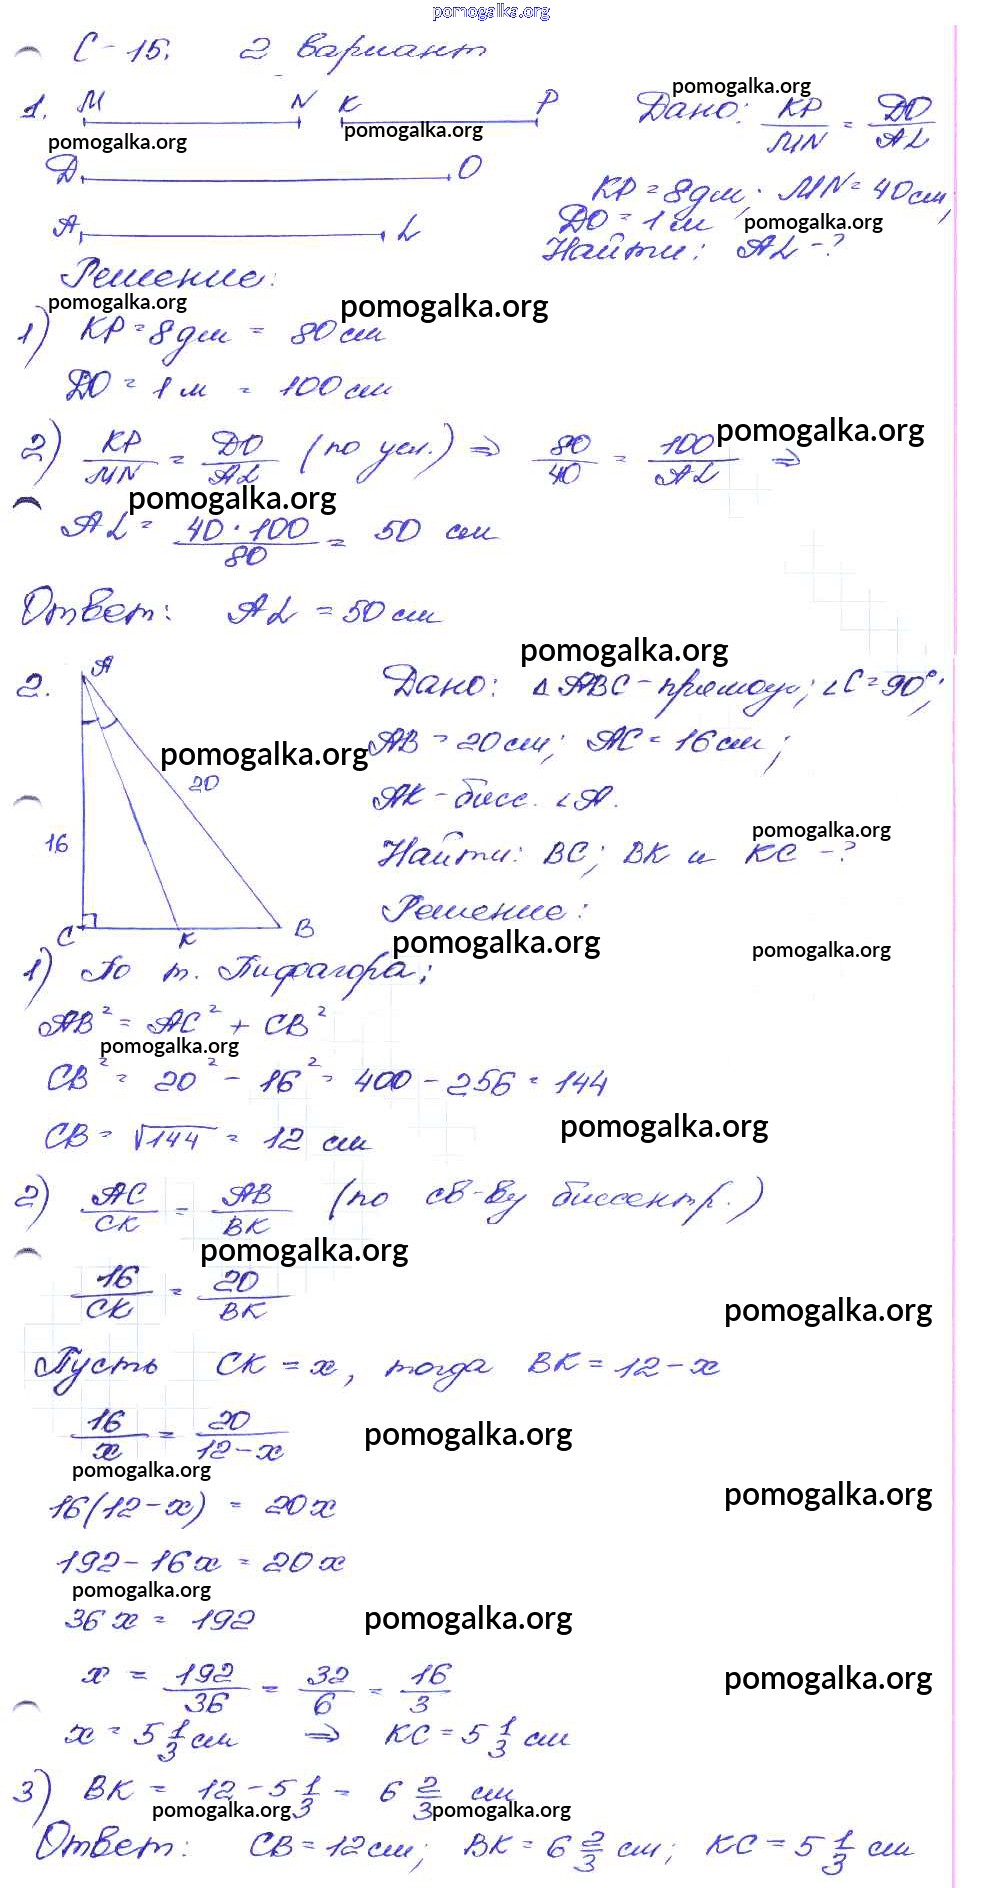 pomogalka.org
С-15. 2 вариант
1. M N K P Дано: KP/MN = DO/AL
pomogalka.org pomogalka.org pomogalka.org
D O
KP = 8 дм; MN = 40 см;
DO = 1 м pomogalka.org
A L Найти: AL - ?
Решение:
pomogalka.org pomogalka.org
1) KP = 8 дм = 80 см
DO = 1 м = 100 см
2) KP/MN = DO/AL (по усл.) ⇒ 80/40 = 100/AL ⇒
pomogalka.org
pomogalka.org
AL = 40 · 100/80 = 50 см
Ответ: AL = 50 см
pomogalka.org
2. A Дано: Δ ABC - прямоуг; ∠C = 90°;
pomogalka.org AB = 20 см; AC = 16 см;
20
AK - бисс. ∠A.
pomogalka.org
16 Найти: BC; BK и KC - ?
Решение:
C K B
pomogalka.org pomogalka.org
1) По т. Пифагора;
AB² = AC² + CB²
pomogalka.org
CB² = 20² - 16² = 400 - 256 = 144
pomogalka.org
CB = √144 = 12 см
2) AC/CK = AB/BK (по св-ву биссектр.)
pomogalka.org
16/CK = 20/BK
pomogalka.org
Пусть CK = x, тогда BK = 12 - x
16/x = 20/12 - x
pomogalka.org
pomogalka.org
pomogalka.org
16(12 - x) = 20x
192 - 16x = 20x
pomogalka.org
36x = 192
pomogalka.org
x = 192/36 = 32/6 = 16/3
pomogalka.org
x = 5 1/3 см ⇒ KC = 5 1/3 см
3) BK = 12 - 5 1/3 = 6 2/3 см
pomogalka.org pomogalka.org
Ответ: CB = 12 см; BK = 6 2/3 см; KC = 5 1/3 см